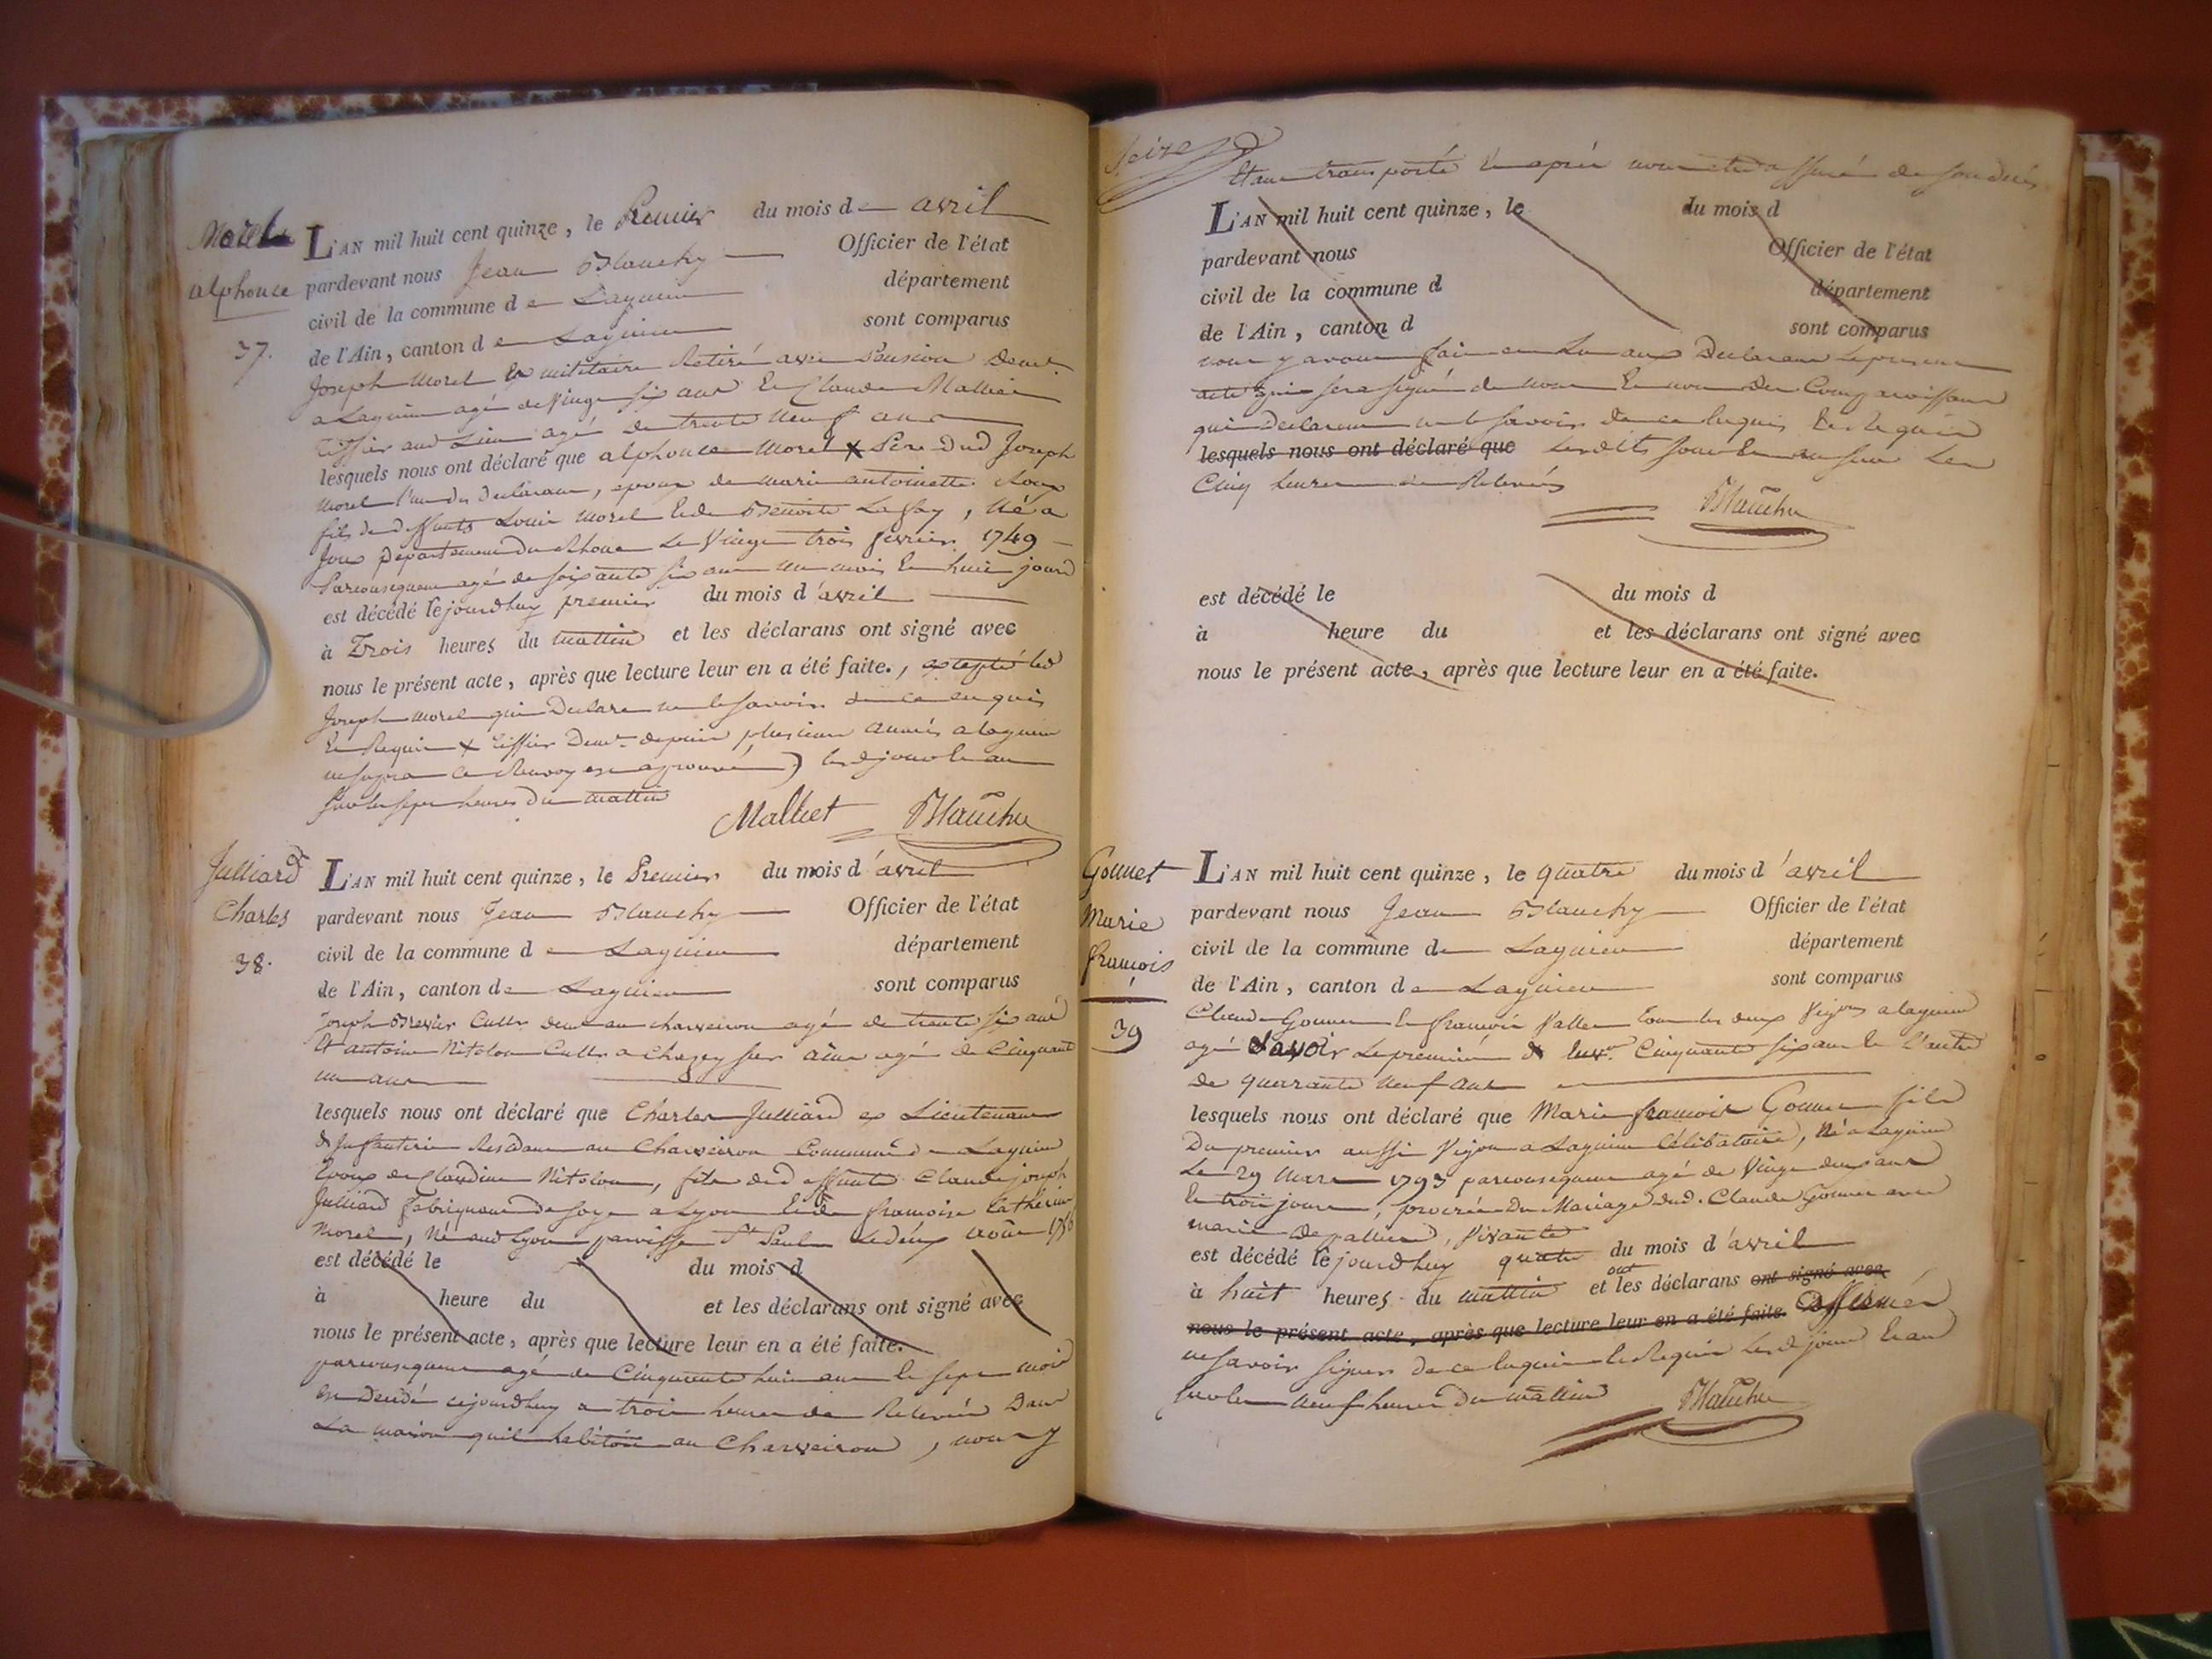 Morel
alphonce
37.
L'AN mil huit cent quinze, le Premier du mois de avril
pardevant nous Jean Blanchy Officier de l'état
civil de la commune de Lagnieu département
de l'Ain, canton de Lagnieu sont comparus
Joseph Morel Ex militaire Retiré avec Pension Demt
a Lagnieu agé de Vingt six ans Et Claude Malliet
Tissier aud Lieu agé de trente Neuf ans
lesquels nous ont déclaré que alphonce Morel x Père Dud Joseph
Morel l'un des declarans, epoux de marie antoinette
fils de deffunts Louis Morel Et de Benoite Lafay, Né a
Joux Departement Du Rhone Le Vingt trois fevrier 1749
Parconsequent agé de soixante six ans un mois Et huit jours
est décédé cejourdhuy premier du mois d'avril
à Trois heures du mattin et les déclarans ont signé avec
nous le présent acte, après que lecture leur en a été faite., exepté led
Joseph morel qui Declare ne le savoir de ce enquis
Et Requis x Tissier Demt depuis plusieurs années a lagnieu
ce Renvoy est aprouvé) lesd jour Et an
sur les sept heures du mattin
Malliet Blanchy
Julliard
Charles
38.
L'AN mil huit cent quinze, le Premier du mois d'avril
pardevant nous Jean Blanchy Officier de l'état
civil de la commune de Lagnieu département
de l'Ain, canton de Lagnieu sont comparus
Joseph Brevier Cultr demt au charveiron agé de trente six ans
Et antoine Nitolon Cultr a Chazey sur ains agé de Cinquante
un ans
lesquels nous ont déclaré que Charles Julliard ex Lieutenant
d'Infanterie Residant au Charveiron Commune de Lagnieu
Epoux de Claudine Nitolon, fils de deffunts Claude joseph
Julliard fabriquant de soye a Lyon Et de francoise Catherine
Morel, Né aud Lyon paroisse St Paul Le deux août
est décédé le du mois d
à heure du et les déclarans ont signé avec
nous le présent acte, après que lecture leur en a été faite.
parconsequent agé de Cinquante huit ans Et sept mois
Est Decédé cejourdhuy a trois heures de Relevée Dans
La maison qu'il habitoit au Charveiron, nous y
Seize
Etant transporté Et après nous etre assuré de son décès
L'AN mil huit cent quinze, le du mois d
pardevant nous Officier de l'état
civil de la commune d département
de l'Ain, canton d sont comparus
nous y avons fait en Lu aux Declarans Le present
acte qui sera signé de nous Et non Des Comparoissans
qui Declarent ne le savoir de ce Enquis Et Requis
lesquels nous ont déclaré que Lesdits jour Et an sur Les
Cinq heures de Relevée
Blanchy
est décédé le du mois d
à heure du et les déclarans ont signé avec
nous le présent acte, après que lecture leur en a été faite.
Gonnet
Marie
francois
39
L'AN mil huit cent quinze, le quatre du mois d'avril
pardevant nous Jean Blanchy Officier de l'état
civil de la commune de Lagnieu département
de l'Ain, canton de Lagnieu sont comparus
Claude Gonnet Et francois Vallet tous les deux Vignons a lagnieu
agé Savoir Le premier de Cinquante six ans Et l'autre
de quarante neuf ans
lesquels nous ont déclaré que Marie francois Gonnet fils
Du premier aussi Vignon a Lagnieu Célibataire, Né a Lagnieu
Le 29 Mars 1793 parconsequent agé de Vingt deux ans
Et trois jours, procréé Du Mariage dud. Claude Gonnet avec
marie Depallier, Vivante
est décédé cejourdhuy quatre du mois d'avril
à huit heures du mattin et les déclarans ont ont signé avec
nous le présent acte, après que lecture leur en a été faite. affirmés
ne savoir signer de ce Enquis et Requis Lesd jour Et an
sur les neuf heures Du mattin
Blanchy